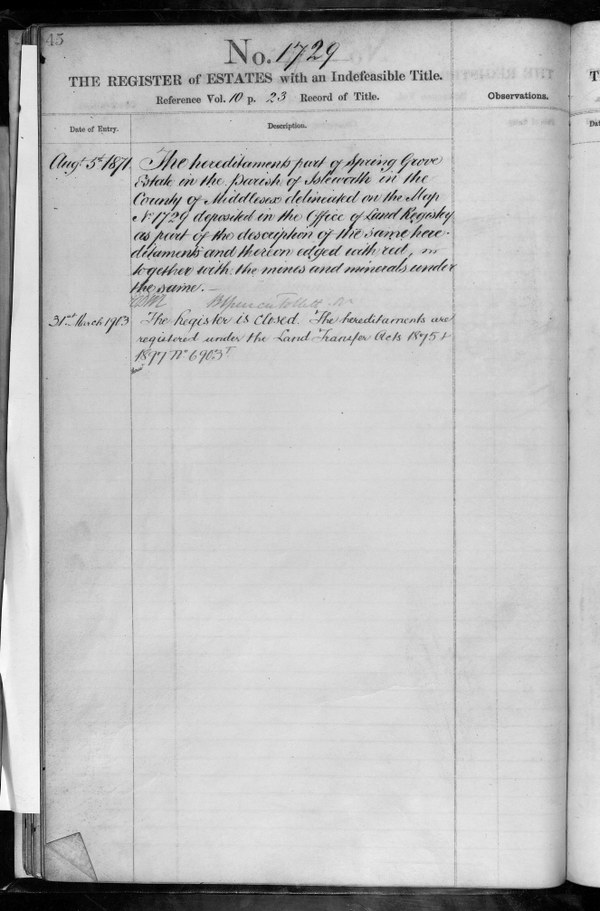 45
No. 1729
THE REGISTER of ESTATES with an Indefeasible Title.
Reference Vol. 10 p. 23 Record of Title.
Observations.
Date of Entry.
Description.
Augt 5th 1871.
The hereditaments part of Spring Grove
Estate in the Parish of Isleworth in the
County of Middlesex delineated on the Map
No 1729 deposited in the Office of Land Registry
as part of the description of the same here-
ditaments and thereon edged with red,
together with the mines and minerals under
the same.—
31st March 1913
The Register is closed. The hereditaments are
registered under the Land Transfer Acts 1875 &
1897 No 6903